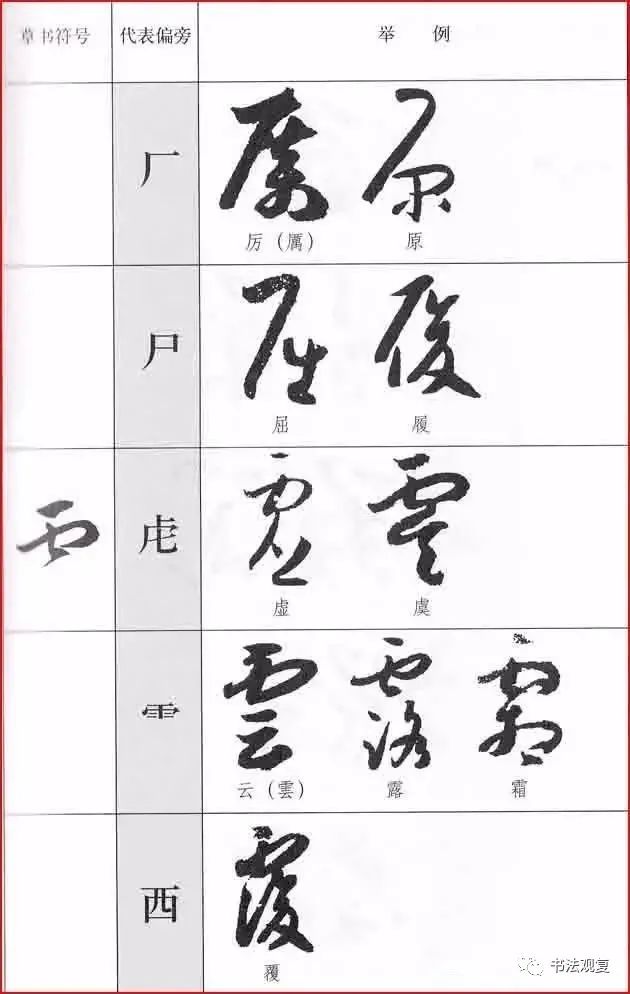 草书符号 代表偏旁 举例
厂
厉（厲） 原
尸
屈 履
虍
虚 虞
⻗
云（雲） 露 霜
西
覆
书法观复